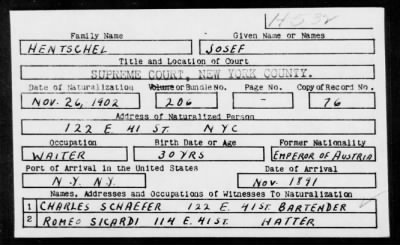 H532
Family Name Given Name or Names
HENTSCHEL JOSEF
Title and Location of Court
SUPREME COURT, NEW YORK COUNTY.
Date of Naturalization Volume or Bundle No. Page No. Copy of Record No.
NOV. 26, 1902 206 - 76
Address of Naturalized Person
122 E. 41 ST. NYC
Occupation Birth Date or Age Former Nationality
WAITER 30 YRS EMPEROR OF AUSTRIA
Port of Arrival in the United States Date of Arrival
N.Y. N.Y. NOV. 1891
Names, Addresses and Occupations of Witnesses To Naturalization
1 CHARLES SCHAEFER 122 E. 41 ST. BARTENDER
2 ROMEO SICARDI 114 E. 41 ST. HATTER